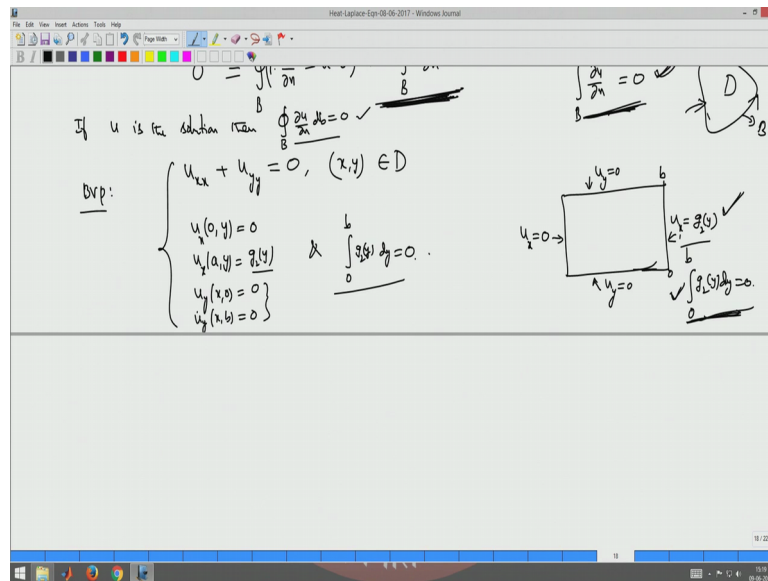 Heat-Laplace-Eqn-08-06-2017 - Windows Journal
File Edit View Insert Actions Tools Help
Page Width
B I
B
∫_B ∂u/∂n = 0 ✓
D
B
If u is the solution then ∮_B ∂u/∂n db = 0 ✓
BVP:
u_xx + u_yy = 0, (x,y) ∈ D
u_x(0,y) = 0
u_x(a,y) = g_2(y) & ∫_0^b g_2(y) dy = 0.
u_y(x,0) = 0
u_y(x,b) = 0
↓ u_y=0 b
u_x=0 →
← u_x = g_2(y) ✓
0
↑ u_y=0
✓ ∫_0^b g_2(y) dy = 0.
18 / 22
18
15:19
09-06-20